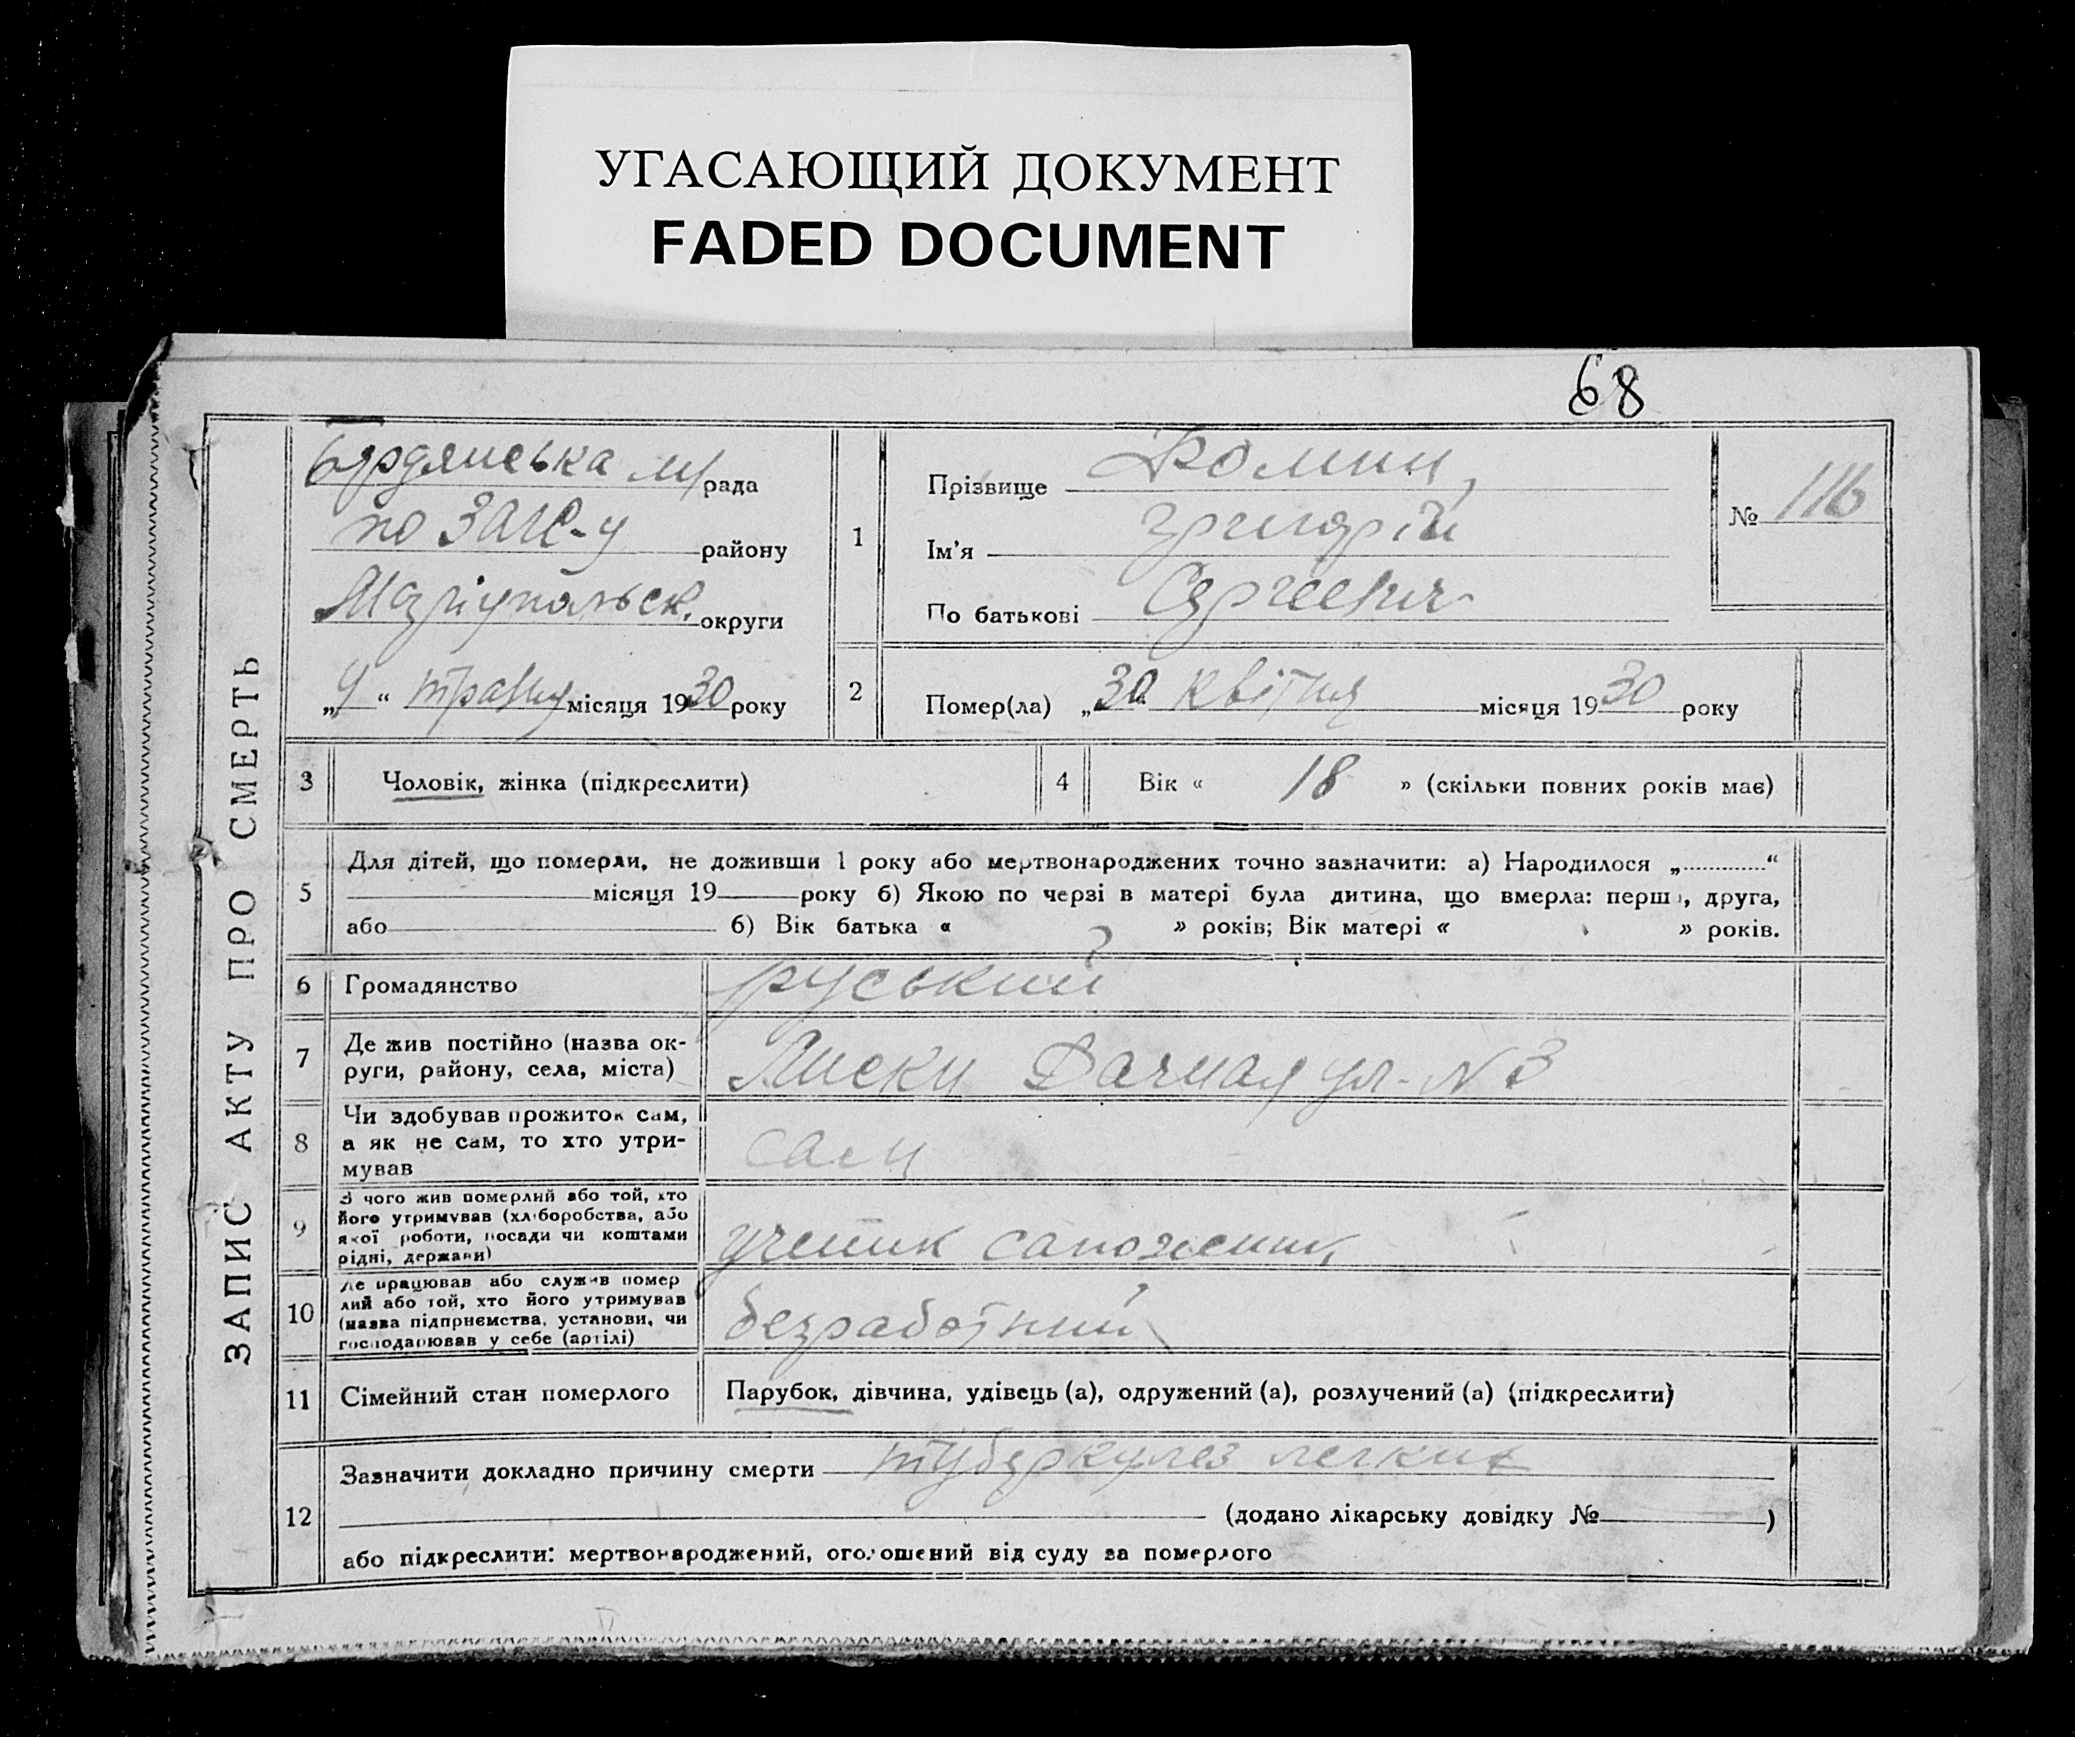 УГАСАЮЩИЙ ДОКУМЕНТ
FADED DOCUMENT
68
ЗАПИС АКТУ ПРО СМЕРТЬ
Бердянська м/рада
по ЗАГС-у району
Маріупольськ. округи
„9“ травня місяця 1930 року
1
Прізвище
Ім’я Григорій
По батькові Сергеевич
№ 116
2
Помер(ла) „30 квітня місяця 1930 року
3 Чоловік, жінка (підкреслити)
4 Вік « 18 » (скільки повних років має)
5
Для дітей, що померли, не доживши 1 року або мертвонароджених точно зазначити: а) Народилося „ “
місяця 19 року б) Якою по черзі в матері була дитина, що вмерла: перша, друга,
або б) Вік батька « » років; Вік матері « » років.
6 Громадянство руський
7 Де жив постійно (назва ок-
руги, району, села, міста)
Лиски Дачная ул. N 3
8
Чи здобував прожиток сам,
а як не сам, то хто утри-
мував
сам
9
З чого жив померлий або той, хто
його утримував (хліборобства, або
якої роботи, посади чи коштами
рідні, держави)
ученик сапожник
10
Де працював або служив помер
лий або той, хто його утримував
(назва підприємства, установи, чи
господарював у себе (артілі)
безработний
11 Сімейний стан померлого Парубок, дівчина, удівець (а), одружений (а), розлучений (а) (підкреслити)
12
Зазначити докладно причину смерти туберкулез легких
(додано лікарську довідку № )
або підкреслити: мертвонароджений, оголошений від суду за померлого